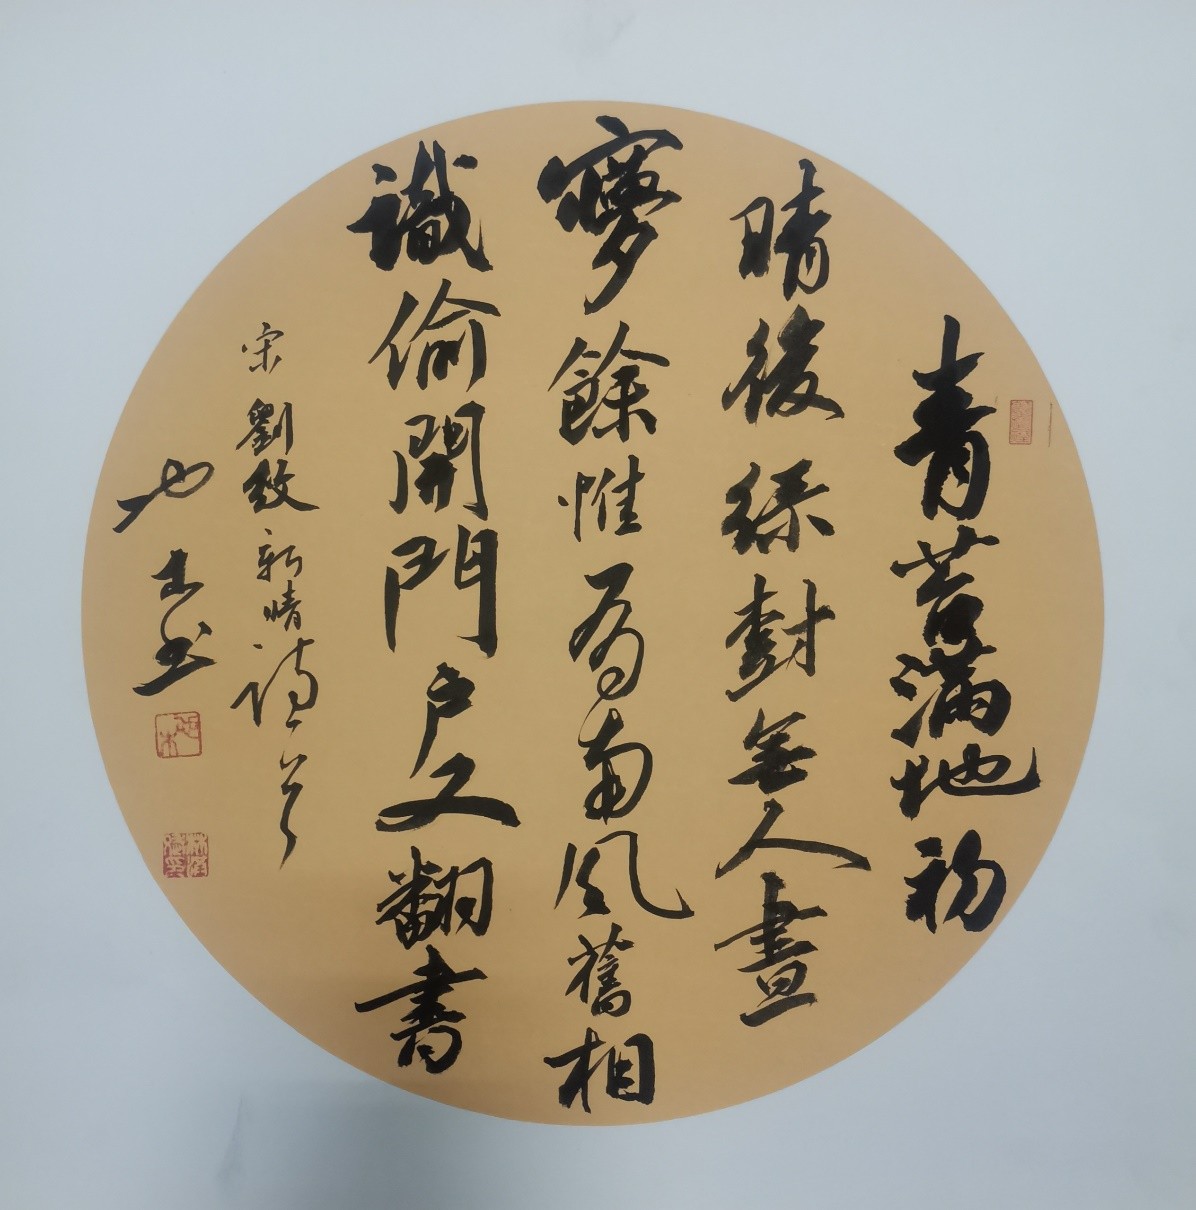 青苔滿地初
晴後綠樹無人晝
夢餘惟有南風舊相
識偷開門户又翻書
宋劉攽新晴詩一首
也木書